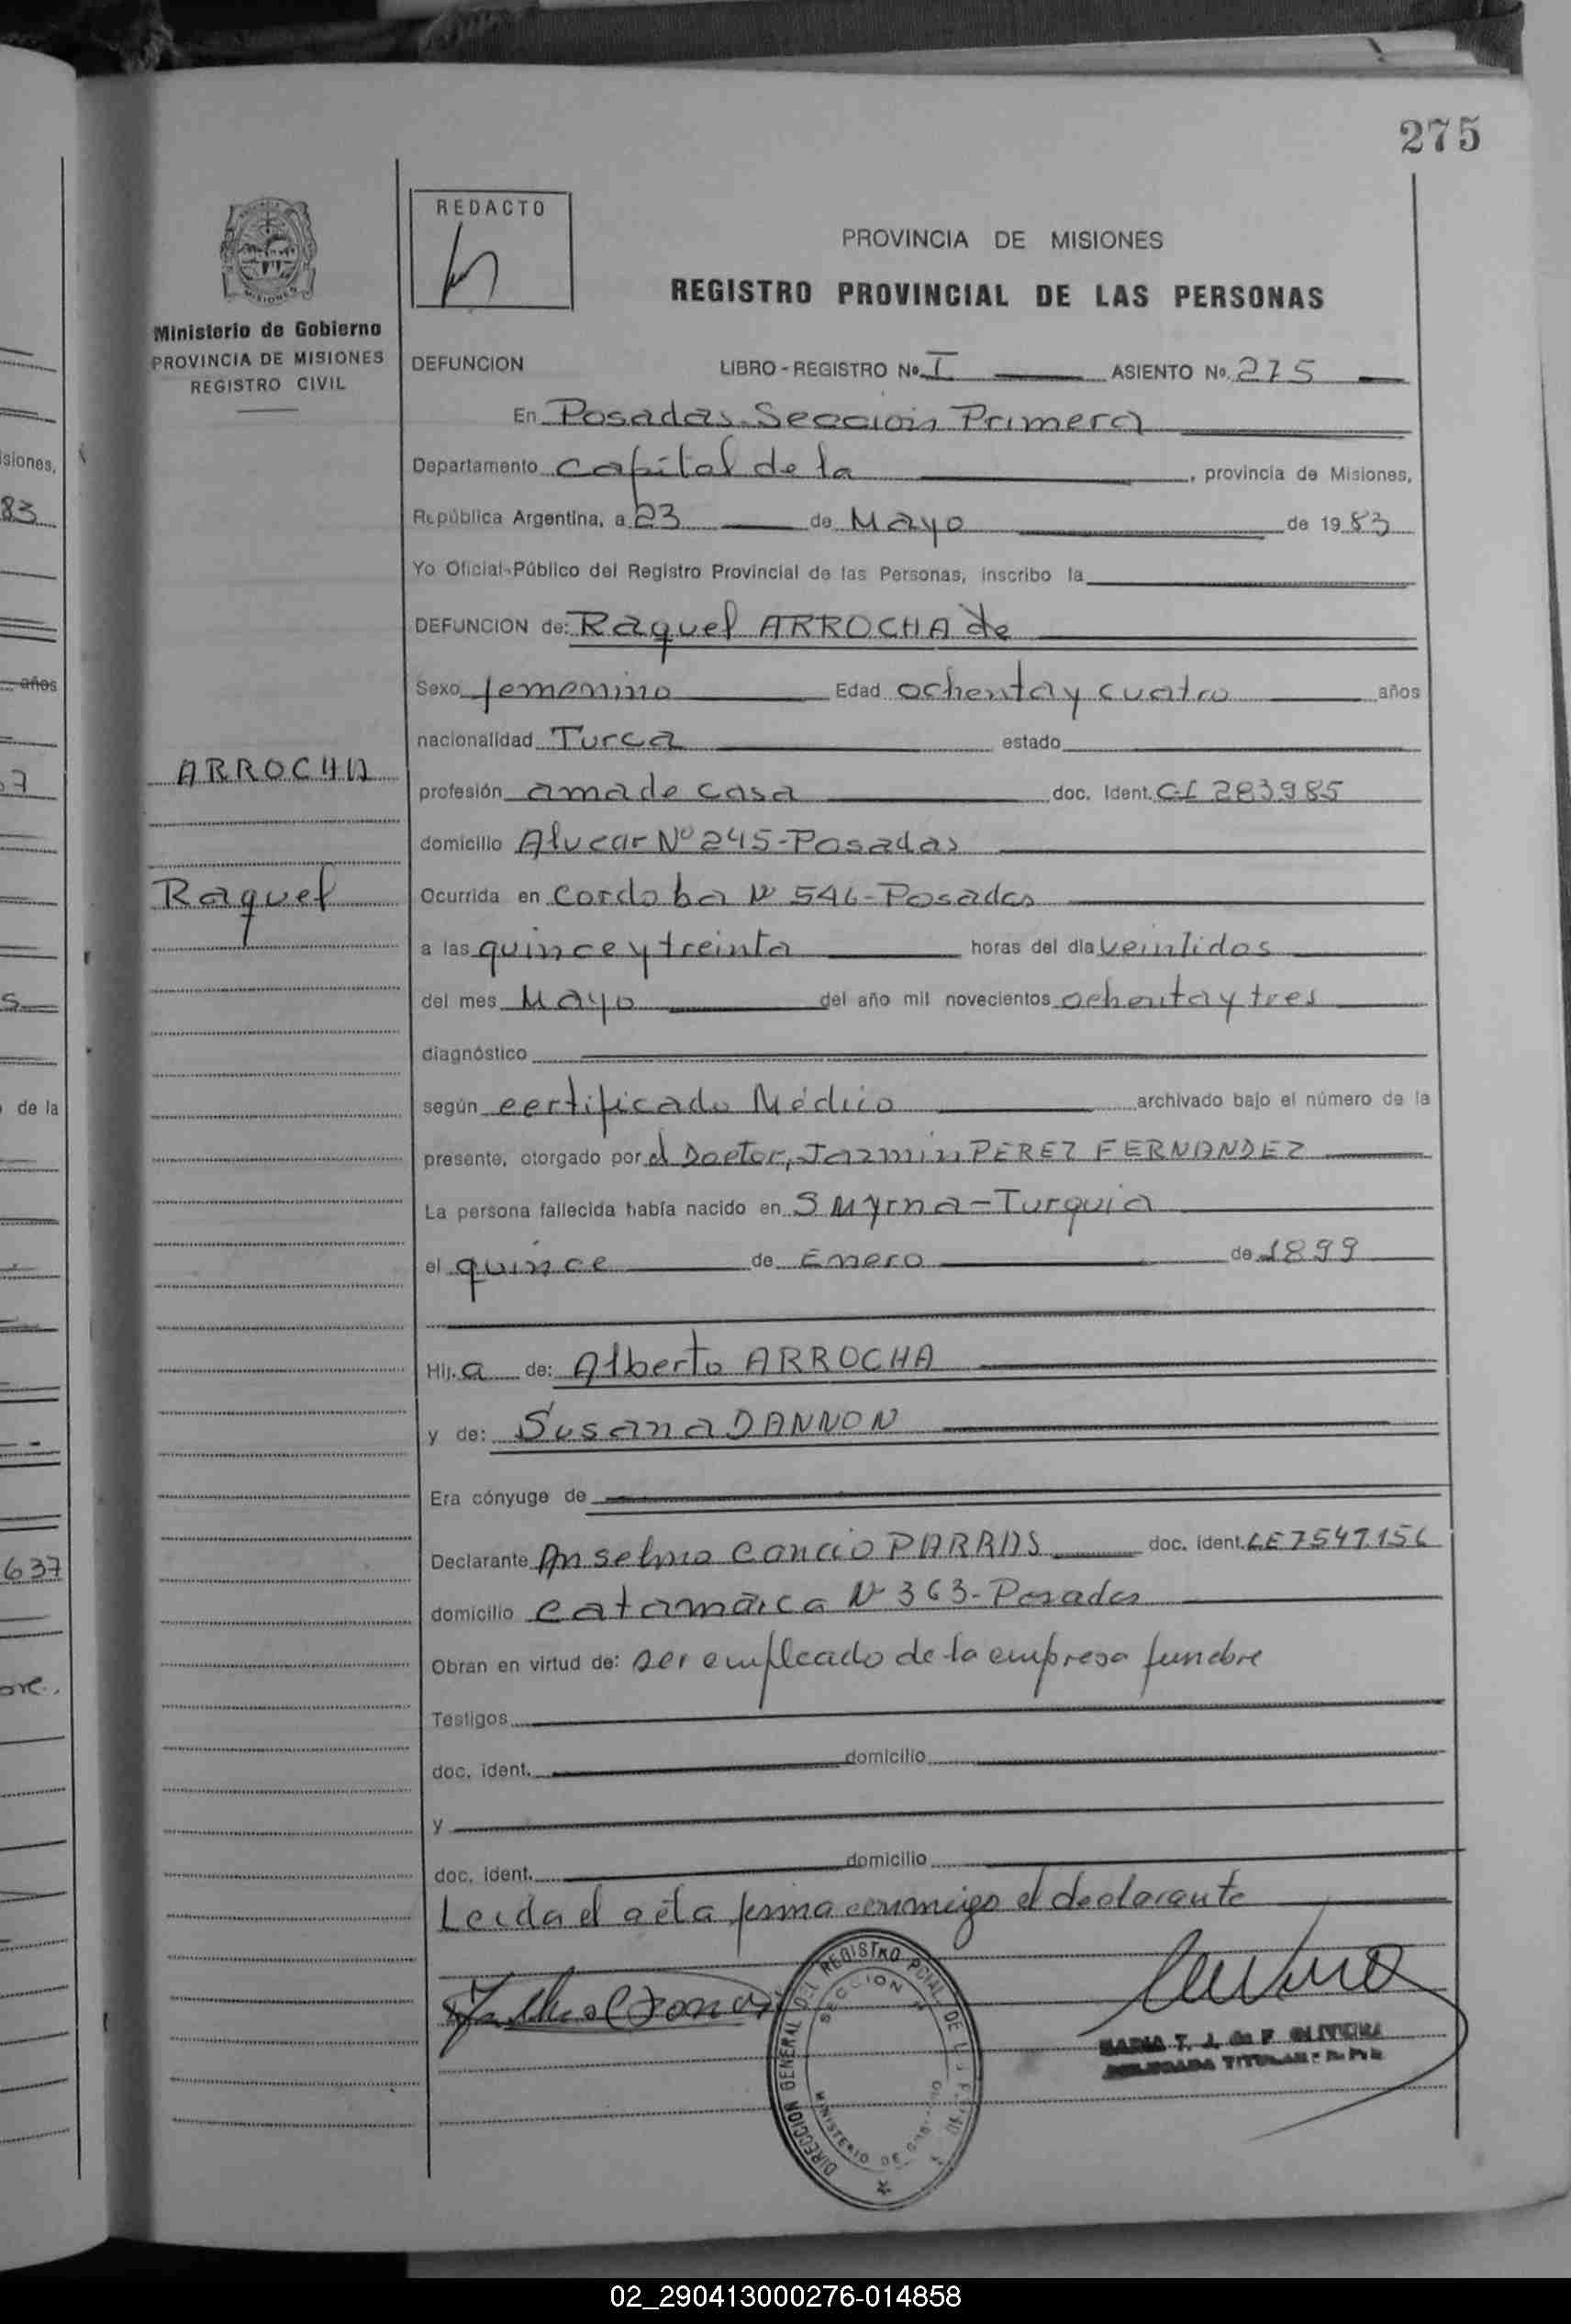 275
REDACTO
PROVINCIA DE MISIONES
REGISTRO PROVINCIAL DE LAS PERSONAS
MISIONES
Ministerio de Gobierno
PROVINCIA DE MISIONES
REGISTRO CIVIL
DEFUNCION LIBRO - REGISTRO Nº I ASIENTO Nº 275
En Posadas Sección Primera
Departamento Capital de la , provincia de Misiones,
República Argentina, a 23 de Mayo de 19 83
Yo Oficial Público del Registro Provincial de las Personas, inscribo la
DEFUNCION de: Raquel ARROCHA de
Sexo femenino Edad ochenta y cuatro años
nacionalidad Turca estado
ARROCHA
profesión ama de casa doc. Ident. CI 283985
domicilio Alvear Nº 245-Posadas
Raquel
Ocurrida en Cordoba Nº 546-Posadas
a las quince y treinta horas del día veintidos
del mes Mayo del año mil novecientos ochenta y tres
diagnóstico
según certificado Médico archivado bajo el número de la
presente, otorgado por el Doctor, Jazmin PEREZ FERNANDEZ
La persona fallecida había nacido en SMyrna-Turquia
el quince de Enero de 1899
Hij. a de: Alberto ARROCHA
y de: Susana DANNON
Era cónyuge de
Declarante Anselmo Cancio PARRAS doc. ident. LE 7547.156
domicilio Catamarca Nº 363-Posadas
Obran en virtud de: ser empleado de la empresa funebre
Testigos
doc. ident. domicilio
y
doc. ident. domicilio
Leida el acta firma conmigo el declarante
DIRECCION GENERAL DEL REGISTRO PCIAL DE
SECCION
MINISTERIO DE GOBIERNO
MARIA T. J. de F. OLIVEIRA
DELEGADA TITULAR
siones,
83
años
7
s
de la
637
bre.
02_290413000276-014858